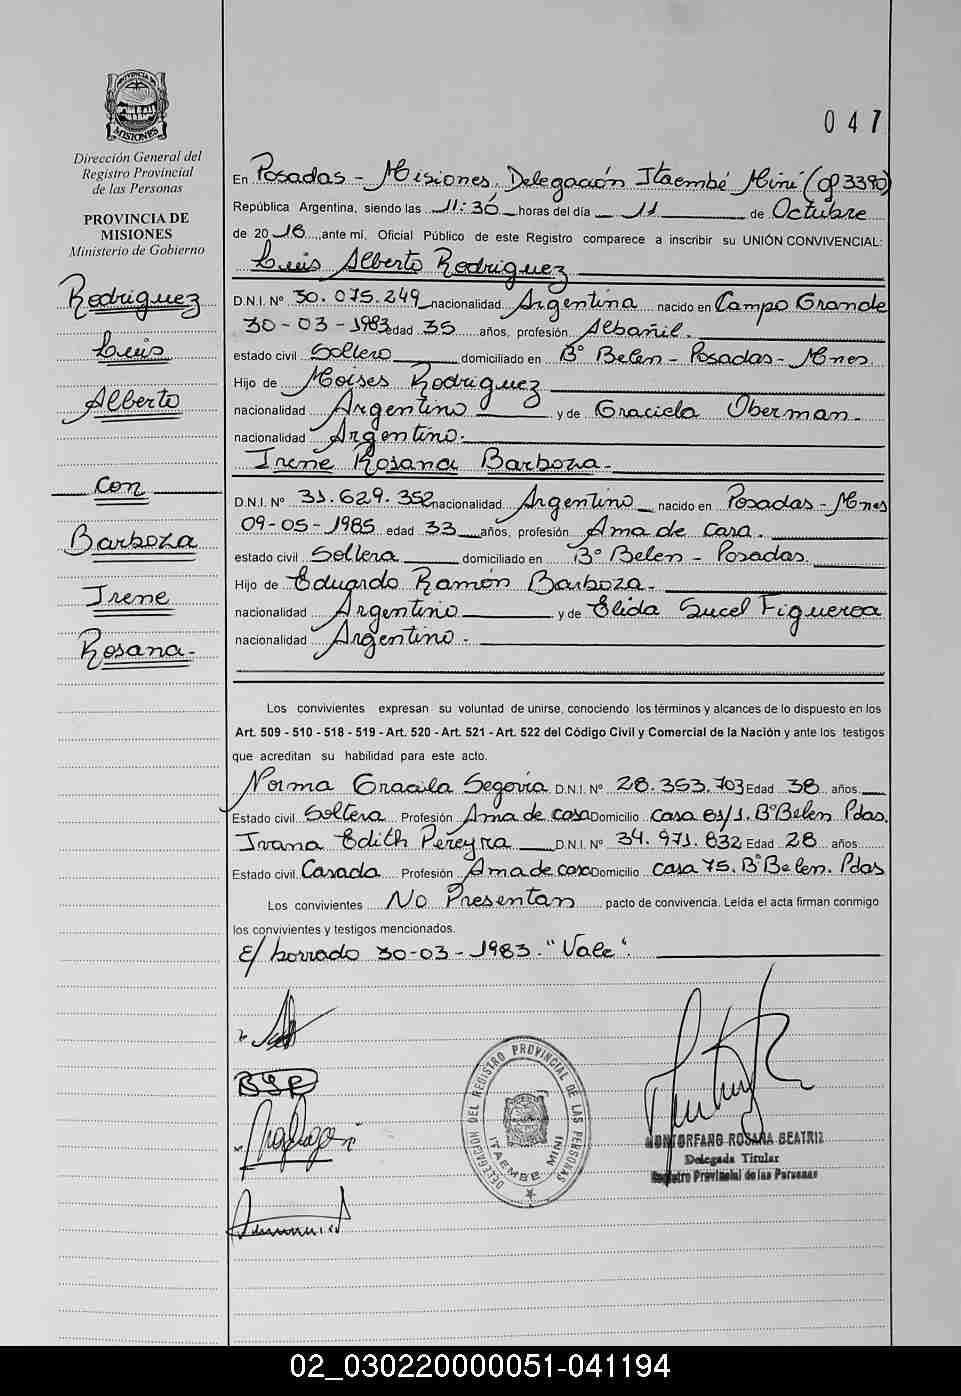 047
PROVINCIA DE
MISIONES
Dirección General del
Registro Provincial
de las Personas
PROVINCIA DE
MISIONES
Ministerio de Gobierno
Rodriguez
Luis
Alberto
con
Barboza
Irene
Rosana-
En Posadas - Misiones, Delegación Itaembé Miní (Of 3390)
República Argentina, siendo las 11:30 horas del día 11 de Octubre
de 2018 ,ante mí, Oficial Público de este Registro comparece a inscribir su UNIÓN CONVIVENCIAL:
Luis Alberto Rodriguez
D.N.I. Nº 30.075.249 nacionalidad Argentina nacido en Campo Grande
30-03-1983 edad 35 años, profesión Albañil.
estado civil Soltero domiciliado en Bº Belen - Posadas - Mnes
Hijo de Moises Rodriguez
nacionalidad Argentino y de Graciela Oberman-
nacionalidad Argentino.
Irene Rosana Barboza-
D.N.I. Nº 31.629.352 nacionalidad Argentino nacido en Posadas - Mnes
09-05-1985 edad 33 años, profesión Ama de casa.
estado civil Soltera domiciliado en Bº Belen - Posadas.
Hijo de Eduardo Ramón Barboza-
nacionalidad Argentino y de Elida Sucel Figueroa
nacionalidad Argentino-
Los convivientes expresan su voluntad de unirse, conociendo los términos y alcances de lo dispuesto en los
Art. 509 - 510 - 518 - 519 - Art. 520 - Art. 521 - Art. 522 del Código Civil y Comercial de la Nación y ante los testigos
que acreditan su habilidad para este acto.
Norma Graciela Segovia D.N.I. Nº 28.353.703 Edad 38 años
Estado civil Soltera Profesión Ama de casa Domicilio casa 81/1. Bº Belen Pdas.
Ivana Edith Pereyra D.N.I. Nº 34.971.832 Edad 28 años
Estado civil Casada Profesión Ama de casa Domicilio casa 75. Bº Belen. Pdas
Los convivientes No Presentan pacto de convivencia. Leída el acta firman conmigo
los convivientes y testigos mencionados.
E/ borrado 30-03-1983. "Vale".
BSR
DELEGACION DEL REGISTRO PROVINCIAL DE LAS PERSONAS
ITAEMBE MINI
MONTORFANO ROSANA BEATRIZ
Delegada Titular
Registro Provincial de las Personas
02_030220000051-041194